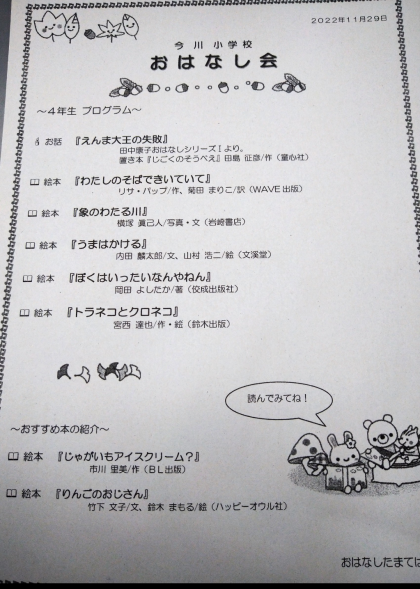 2022年11月29日
今川小学校
おはなし会
～4年生 プログラム～
お話 『えんま大王の失敗』
田中康子おはなしシリーズⅠより。
置き本『じごくのそうべえ』田島 征彦/作（童心社）
絵本 『わたしのそばできいていて』
リサ・パップ/作、菊田 まりこ/訳（WAVE出版）
絵本 『象のわたる川』
横塚 眞己人/写真・文（岩崎書店）
絵本 『うまはかける』
内田 麟太郎/文、山村 浩二/絵（文溪堂）
絵本 『ぼくはいったいなんやねん』
岡田 よしたか/著（佼成出版社）
絵本 『トラネコとクロネコ』
宮西 達也/作・絵（鈴木出版）
読んでみてね！
～おすすめ本の紹介～
絵本 『じゃがいもアイスクリーム？』
市川 里美/作（BL出版）
絵本 『りんごのおじさん』
竹下 文子/文、鈴木 まもる/絵（ハッピーオウル社）
おはなしたまては